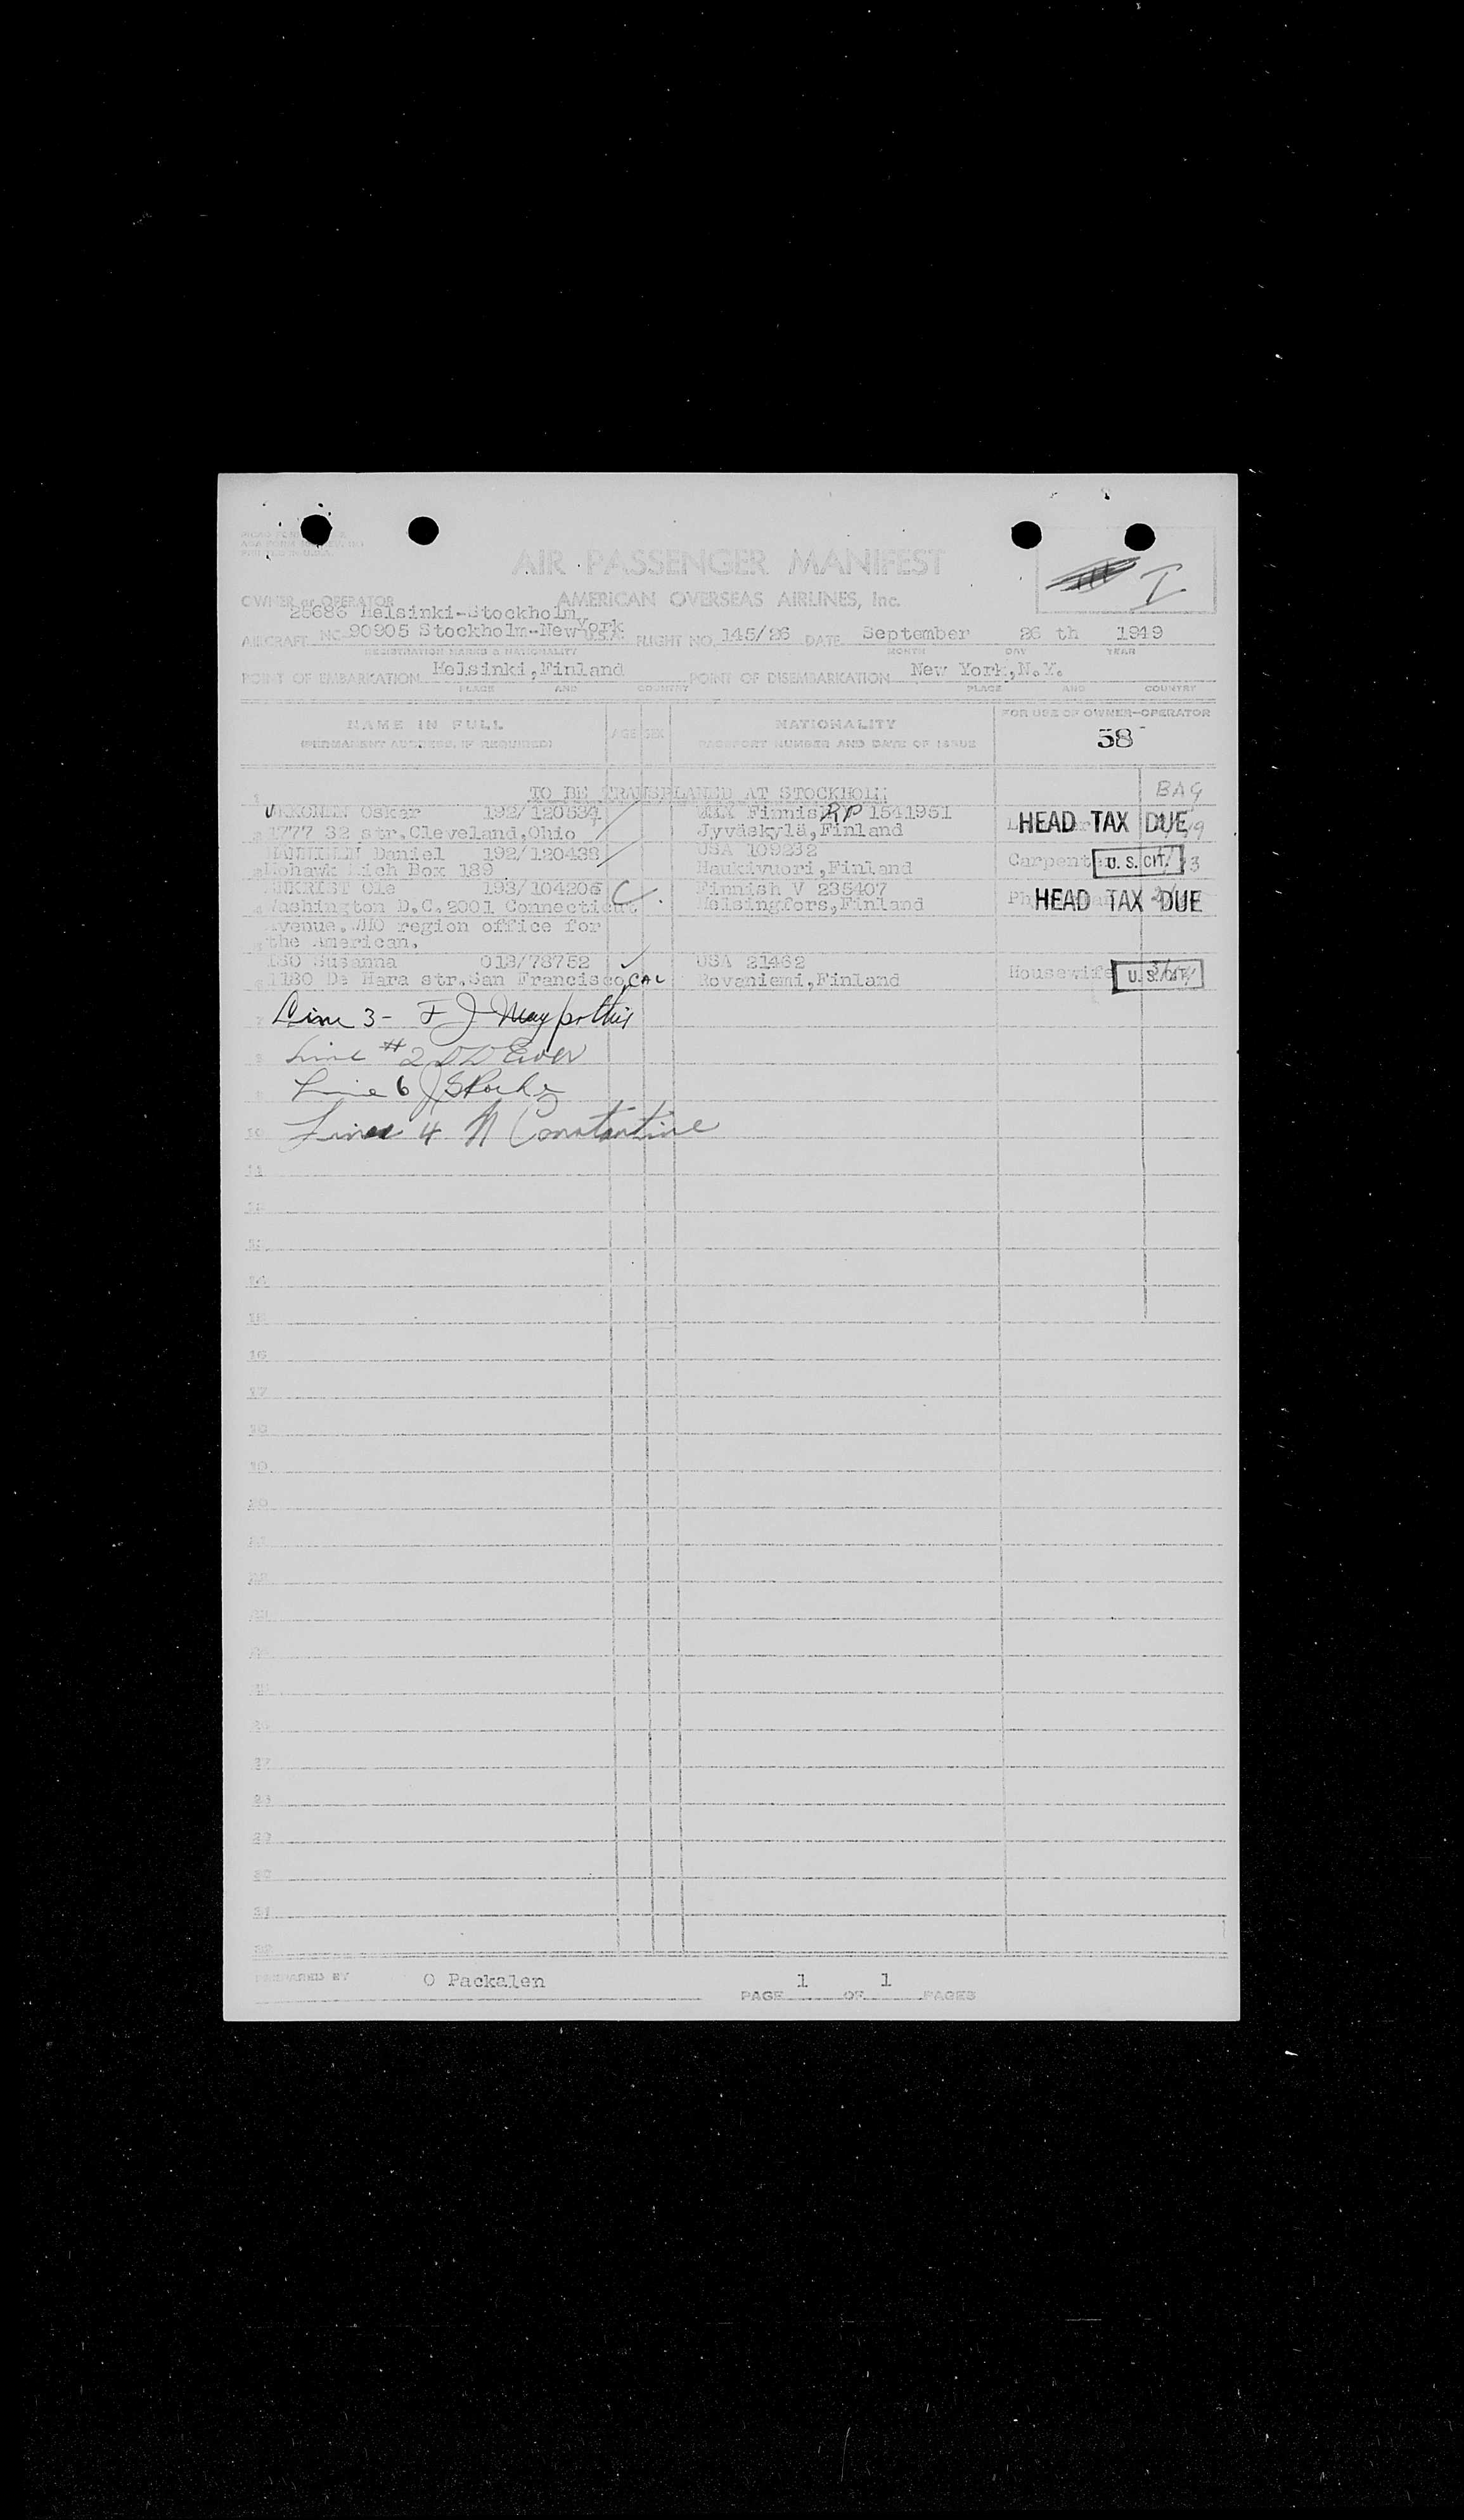 AIR PASSENGER MANIFEST
I
OWNER or OPERATOR AMERICAN OVERSEAS AIRLINES, Inc.
Helsinki-Stockholm
AIRCRAFT NC 90905 Stockholm--New York U.S.A. FLIGHT NO. 145/26 DATE September 26 th 1949
REGISTRATION MARKS & NATIONALITY MONTH DAY YEAR
POINT OF EMBARKATION Helsinki,Finland POINT OF DISEMBARKATION New York,N.Y.
PLACE AND COUNTRY PLACE AND COUNTRY
NAME IN FULL AGE SEX NATIONALITY FOR USE OF OWNER-OPERATOR
(PERMANENT ADDRESS, IF REQUIRED) PASSPORT NUMBER AND DATE OF ISSUE 58
TO BE TRANSPLANED AT STOCKHOLM BAG
Oskar 192/120534 Finnish RP 1541951 HEAD TAX DUE
1777 32 str.Cleveland,Ohio Jyväskylä,Finland
Daniel 192/120438 USA 109232 Carpenter U. S. CIT.
Mohawk Mich Box 189 Haukivuori,Finland
Ole 193/104206 C Finnish V 235407 HEAD TAX DUE
Washington D.C.2001 Connecticut Helsingfors,Finland
Avenue.WHO region office for
the American.
ISO Susanna 018/78752 USA 21462 Housewife U. S. CIT.
1180 De Hara str.San Francisco,CAL Rovaniemi,Finland
Line 3-
Line #2
Line 6
Line 4 N Constantine
10
11
12
13
14
15
16
17
18
19
20
21
22
23
24
25
26
27
28
29
30
31
32
PREPARED BY O Packalen PAGE 1 OF 1 PAGES